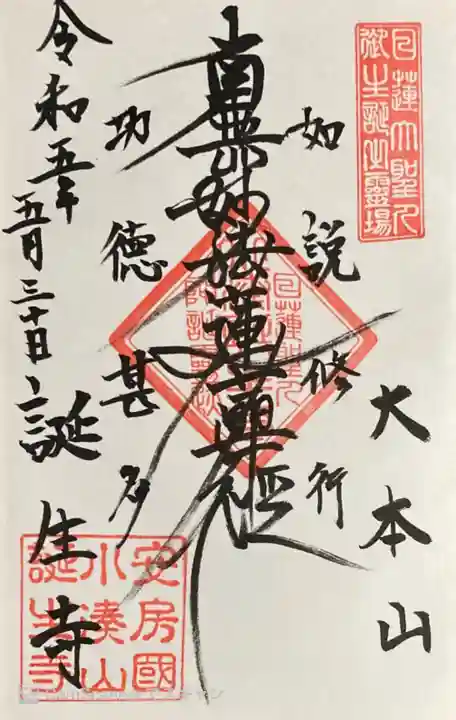 日蓮大聖人
御生誕之靈場
大本山
如説修行
南無妙法蓮華経
功徳甚多
令和五年
五月三十日
誕生寺
安房國
小湊山
誕生寺